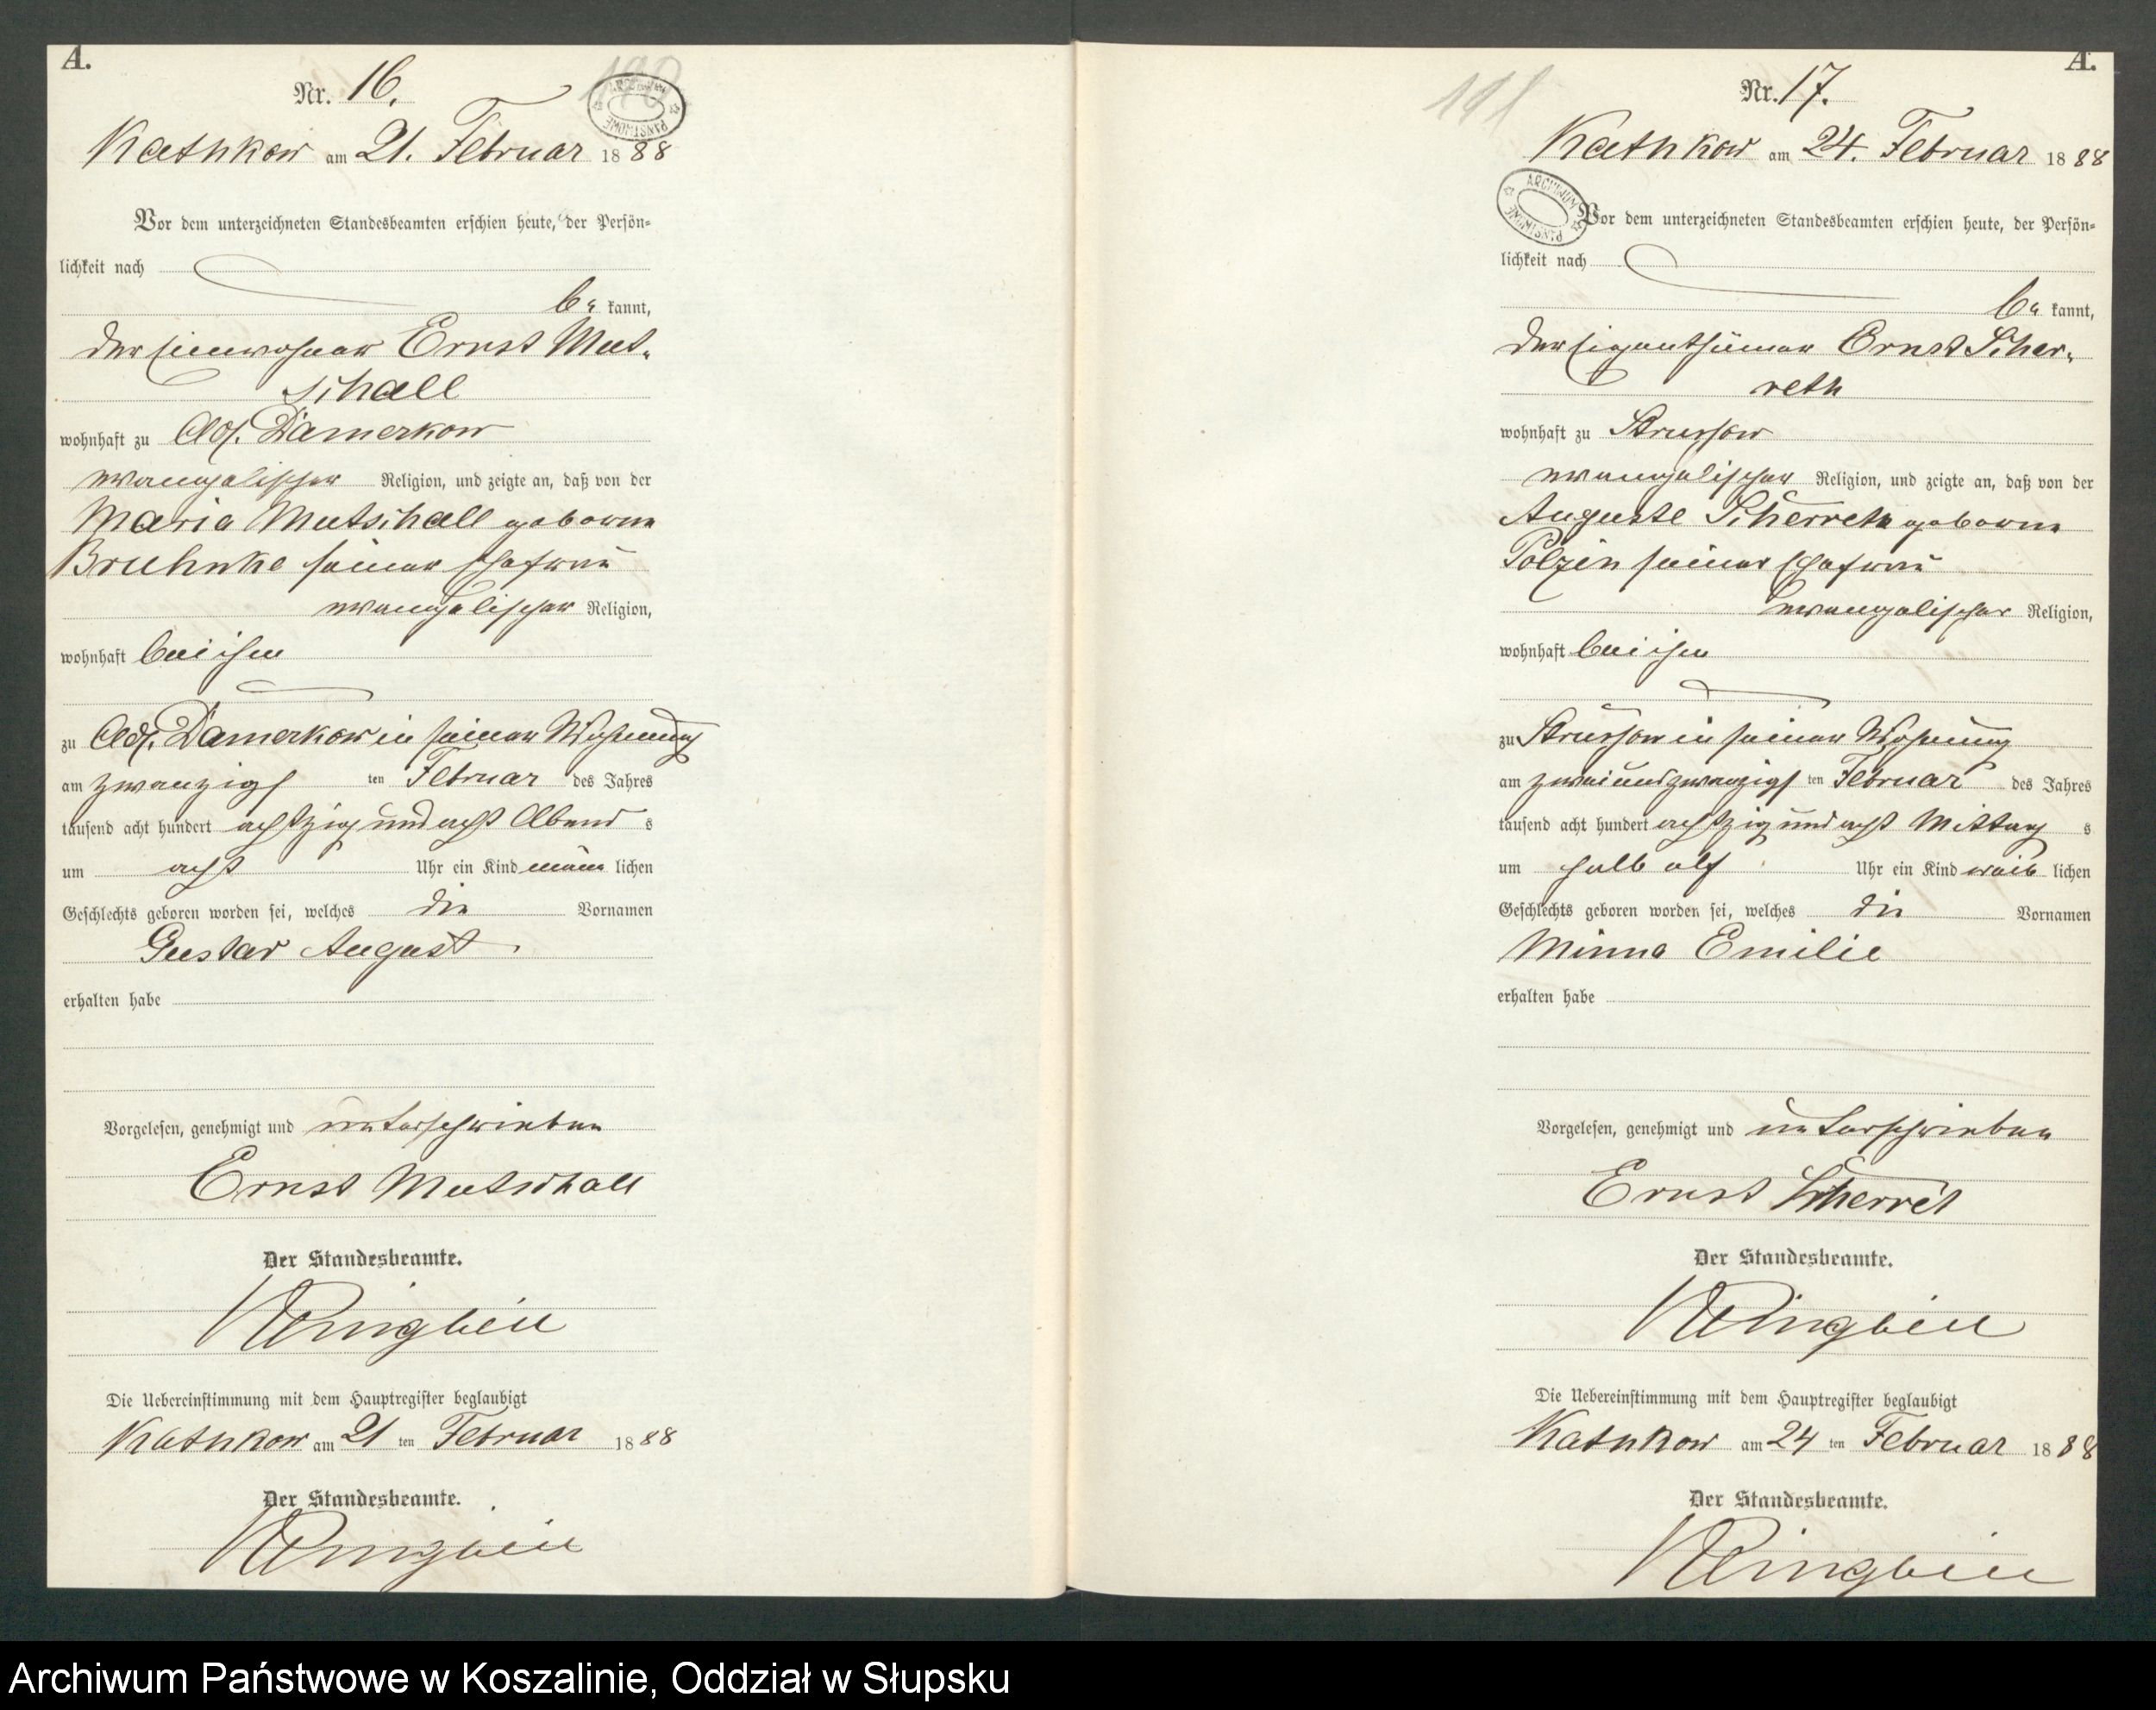 A.
Nr. 16.
Kathkow am 21. Februar 1888
Vor dem unterzeichneten Standesbeamten erschien heute, der Persön=
lichkeit nach
be kannt,
der Einwohner Ernst Mut-
schall
wohnhaft zu Adl. Damerkow
evangelischer Religion, und zeigte an, daß von der
Maria Mutschall geborne
Bruhnke seiner Ehefrau
evangelischer Religion,
wohnhaft bei ihm
zu Adl. Damerkow in seiner Wohnung
am zwanzigs ten Februar des Jahres
tausend acht hundert achtzig und acht Abend s
um acht Uhr ein Kind männ lichen
Geschlechts geboren worden sei, welches die Vornamen
Gustav August
erhalten habe
Vorgelesen, genehmigt und unterschrieben
Ernst Mutschall
Der Standesbeamte.
Die Uebereinstimmung mit dem Hauptregister beglaubigt
Kathkow am 21 ten Februar 1888
Der Standesbeamte.
A.
191
Nr. 17.
Kathkow am 24. Februar 1888
ARCHIWUM PAŃSTWOWE
Vor dem unterzeichneten Standesbeamten erschien heute, der Persön=
lichkeit nach
be kannt,
der Eigenthümer Ernst Scher-
reth
wohnhaft zu Strussow
evangelischer Religion, und zeigte an, daß von der
Auguste Scherreth geborne
Polzin seiner Ehefrau
evangelischer Religion,
wohnhaft bei ihm
zu Strussow in seiner Wohnung
am zweiundzwanzigs ten Februar des Jahres
tausend acht hundert achtzig und acht Mittag s
um halb elf Uhr ein Kind weib lichen
Geschlechts geboren worden sei, welches die Vornamen
Minna Emilie
erhalten habe
Vorgelesen, genehmigt und unterschrieben
Ernst Scherret
Der Standesbeamte.
Die Uebereinstimmung mit dem Hauptregister beglaubigt
Kathkow am 24 ten Februar 1888
Der Standesbeamte.
Archiwum Państwowe w Koszalinie, Oddział w Słupsku